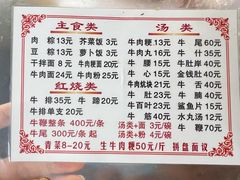 主食类
肉粽13元 芥菜饭3元
豆粽10元 萝卜饭3元
干拌面8元 牛肉粳面21元
牛肉面24元 牛肉粉25元
红烧类
牛排35元 牛蹄20元
牛排单支20元
牛鞭整条 400元/条
牛尾 300元/条 起
汤类
牛肉粳13元 牛尾60元
牛肉13元 牛筋23元
牛腩13元 牛舌23元
牛腱13元 牛肚岸40元
牛肉优块21元 牛肝13元
牛肚21元 牛心13元
牛百叶23元 鲨鱼片15元
牛筋40元 水丸汤12元
汤类+面 3元/碗 牛鞭70元
汤类+粉 4元/碗
青菜8-20元 生牛肉粳50元/斤 拼盘面议